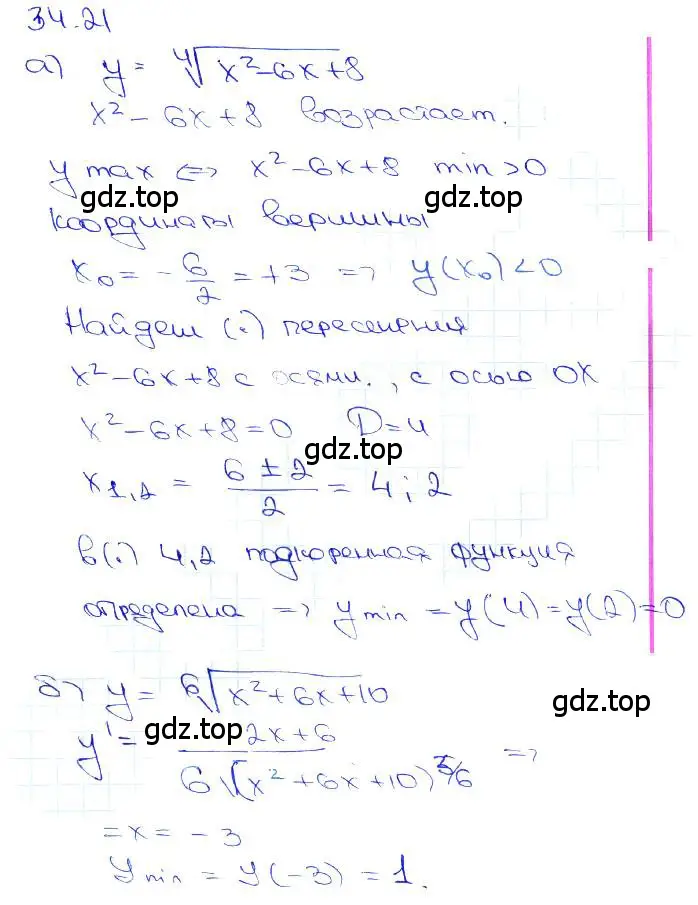 34.21
а) y = ⁴√(x²-6x+8)
x² - 6x+8 возрастает.
y max <=> x²-6x+8 min >0
gdz.top gdz.top
координаты вершины
x₀ = - 6/2 = +3 => y(x₀) <0
Найдем (·) пересечения
x²-6x+8 с осями., с осью OX
x²-6x+8=0 D=4
gdz.top
x₁,₂ = (6 ± 2)/2 = 4; 2
в(·) 4,2 подкоренная функция
определена => y min = y(4)=y(2)=0
б) y = ⁶√(x²+6x+10)
gdz.top
y' = (2x+6)/(6\(x²+6x+10)^5/6) =>
gdz.top
=x= -3
y min = y(-3) = 1.